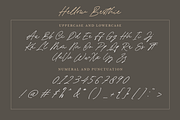 Hellen Berthie
UPPERCASE AND LOWERCASE
Aa Bb Cc Dd Ee Ff Gg Hh Ii Jj
Kk Ll Mm Nn Oo Pp Qq Rr Ss Tt
Uu Vv Ww Xx Yy Zz
NUMERAL AND PUNCTUATION
01234567890